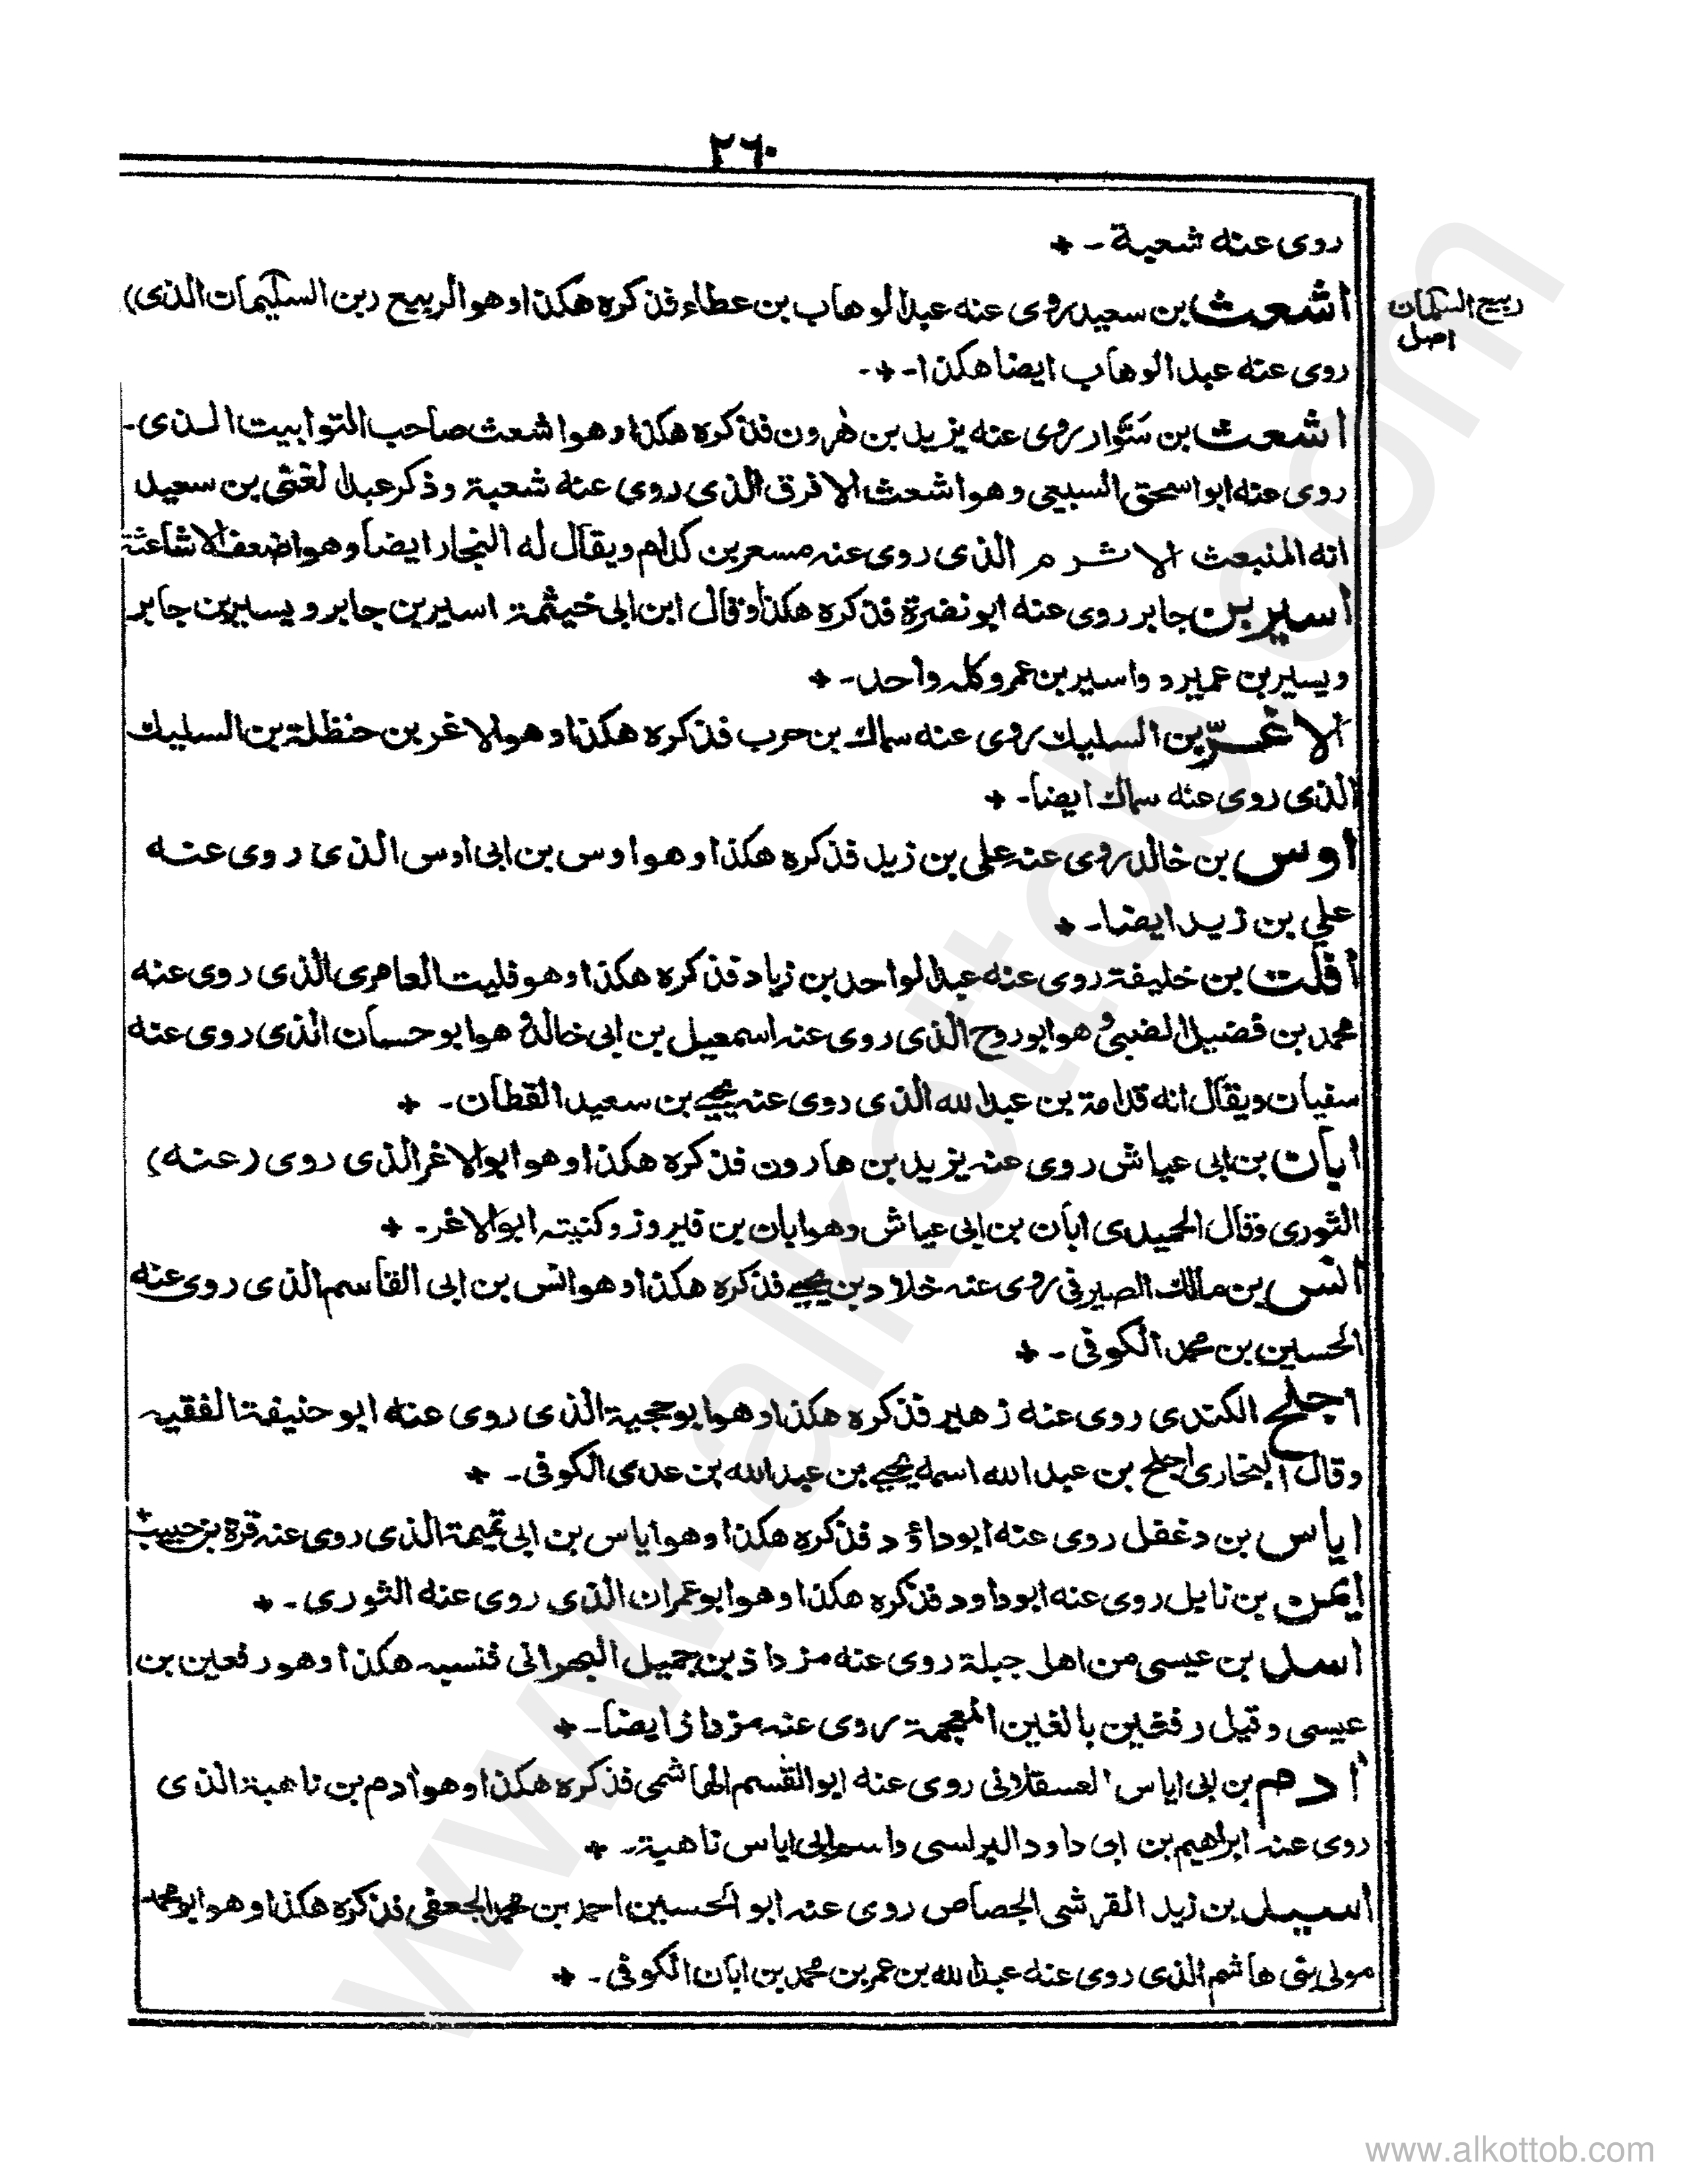 ٢٦٠
روى عنه شعبة ـ ✦
اشعث بن سعيد روى عنه عبد الوهاب بن عطاء فذكره هكذا وهو الربيع (بن السليمان الذى)
ربيع السلمان
اصل
روى عنه عبد الوهاب ايضا هكذا ـ ✦ ـ
اشعث بن سوّار روى عنه يزيد بن هرون فذكره هكذا وهو اشعث صاحب التوابيت الذى ـ
روى عنه ابو اسحق السبيعى وهو اشعث الافرق الذى روى عنه شعبة وذكر عبد الغنى بن سعيد
انه المنبعث الاشرم الذى روى عنه مسعر بن كدام ويقال له النجار ايضا وهو اضعف الاشاعثة
اسير بن جابر روى عنه ابو نضرة فذكره هكذا وقال ابن ابى خيثمة اسير بن جابر ويسير بن جابر
ويسير بن عمير و واسير بن عمرو كله واحد ـ ✦
الاغرّ بن السليك روى عنه سماك بن حرب فذكره هكذا وهو الاغر بن حنظلة بن السليك
الذى روى عنه سماك ايضا ـ ✦
اوس بن خالد روى عنه على بن زيد فذكره هكذا وهو اوس بن ابى اوس الذى روى عنه
على بن زيد ايضا ـ ✦
افلت بن خليفة روى عنه عبد الواحد بن زياد فذكره هكذا وهو فليت العامرى الذى روى عنه
محمد بن فضيل الضبى و هو ابو روح الذى روى عنه اسمعيل بن ابى خالد و هو ابو حسان الذى روى عنه
سفيان ويقال انه قدامة بن عبد الله الذى روى عنه يحيى بن سعيد القطان ـ ✦
ابان بن ابى عياش روى عنه يزيد بن هارون فذكره هكذا وهو ابو الاغر الذى روى (عنه)
الثورى وقال الحميدى ابان بن ابى عياش وهو ابان بن فيروز وكنيته ابو الاغر ـ ✦
انس بن مالك الصيرفى روى عنه خلاد بن يحيى فذكره هكذا وهو انس بن ابى القاسم الذى روى عنه
الحسين بن محمد الكوفى ـ ✦
اجلح الكندى روى عنه زهير فذكره هكذا وهو ابو حجية الذى روى عنه ابو حنيفة الفقيه
وقال البخارى اجلح بن عبد الله اسمه يحيى بن عبد الله بن عدى الكوفى ـ ✦
اياس بن دغفل روى عنه ابو داؤد فذكره هكذا وهو اياس بن ابى تميمة الذى روى عنه قرة بن حبيب ✦
ايمن بن نايل روى عنه ابو داود فذكره هكذا وهو ابو عمران الذى روى عنه الثورى ـ ✦
اسد بن عيسى من اهل جبلة روى عنه مزداذ بن جميل البهرانى فنسبه هكذا وهو رفعين بن
عيسى وقيل رفغين بالغين المعجمة روى عنه مزداذ ايضا ـ ✦
أدم بن ابى اياس العسقلانى روى عنه ابو القسم الهاشمى فذكره هكذا وهو ادم بن ناهية الذى
روى عنه ابراهيم بن ابى داود البرلسى واسم ابى اياس ناهية ـ ✦
اسيد بن زيد القرشى الجصاص روى عنه ابو الحسين احمد بن محمد الجعفى فذكره هكذا وهو ابو محمد
مولى بنى هاشم الذى روى عنه عبد الله بن عمر بن محمد بن ابان الكوفى ـ ✦
www.alkottob.com
www.alkottob.com